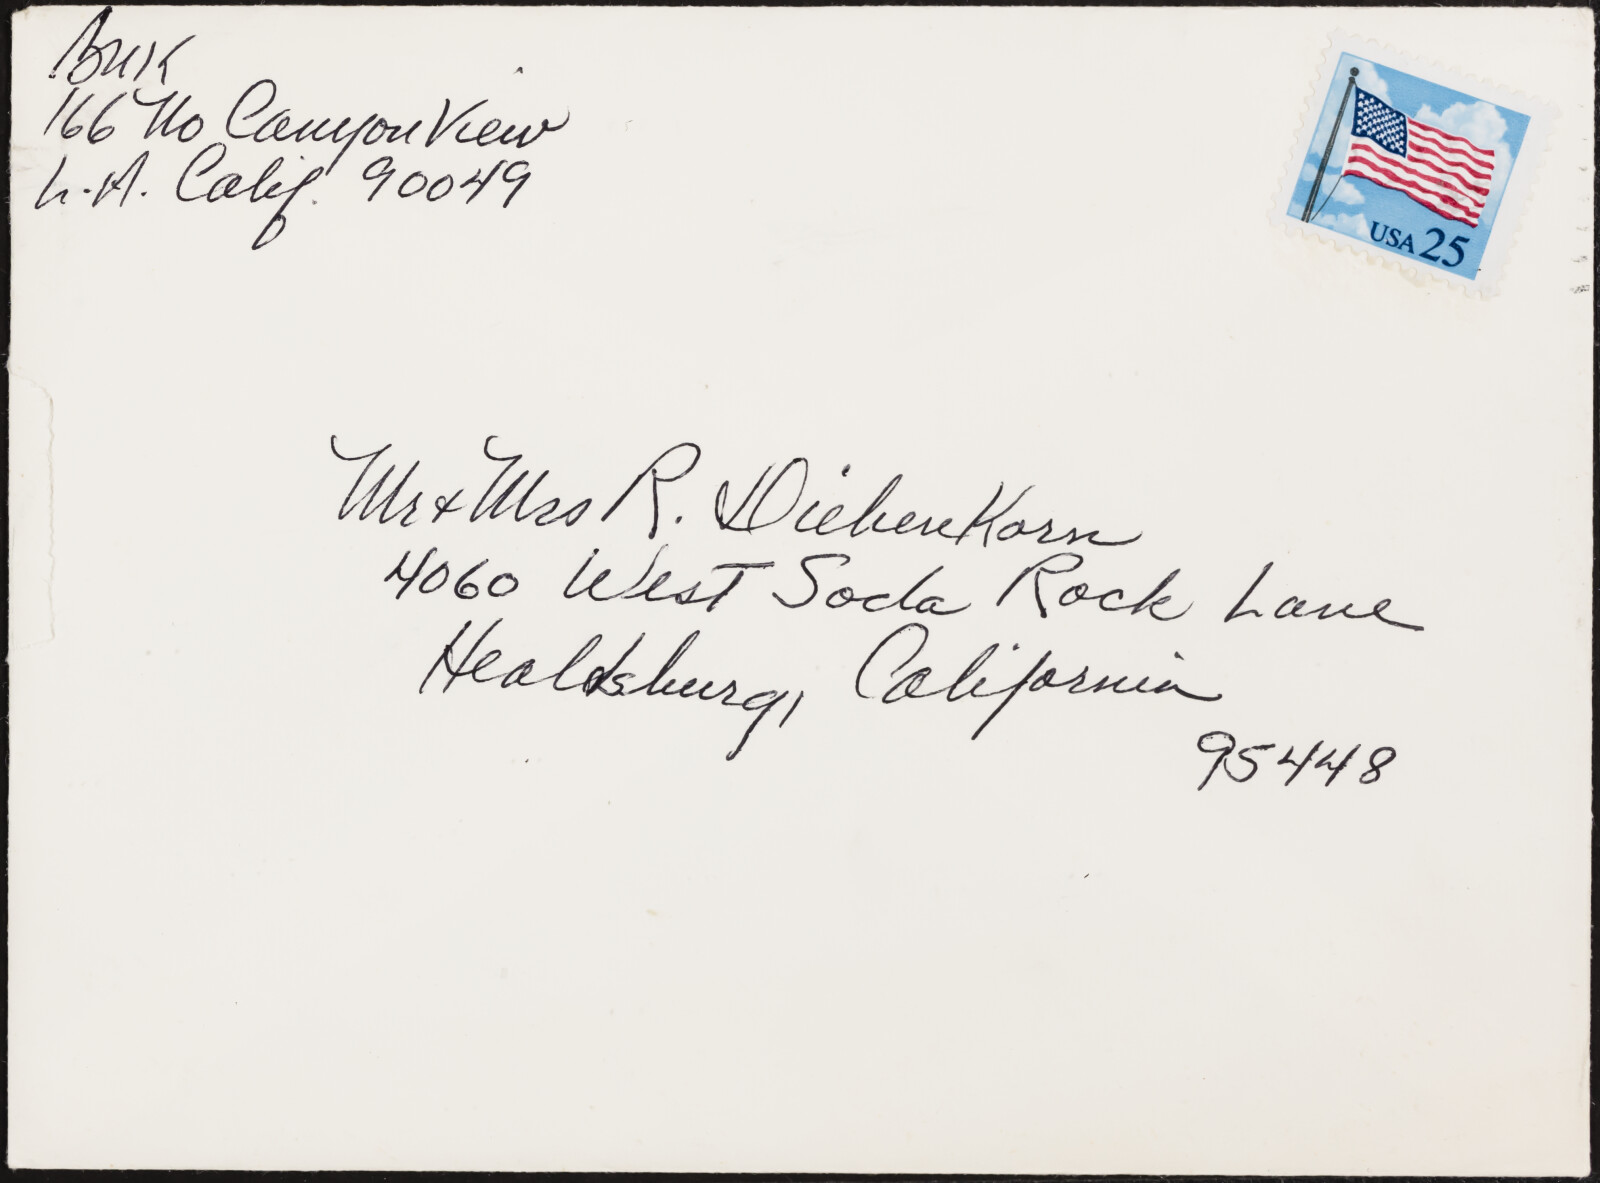 166 No Canyon View
L.A. Calif. 90049
USA 25
Mr & Mrs R. Diebenkorn
4060 West Soda Rock Lane
Healdsburg, California
95448